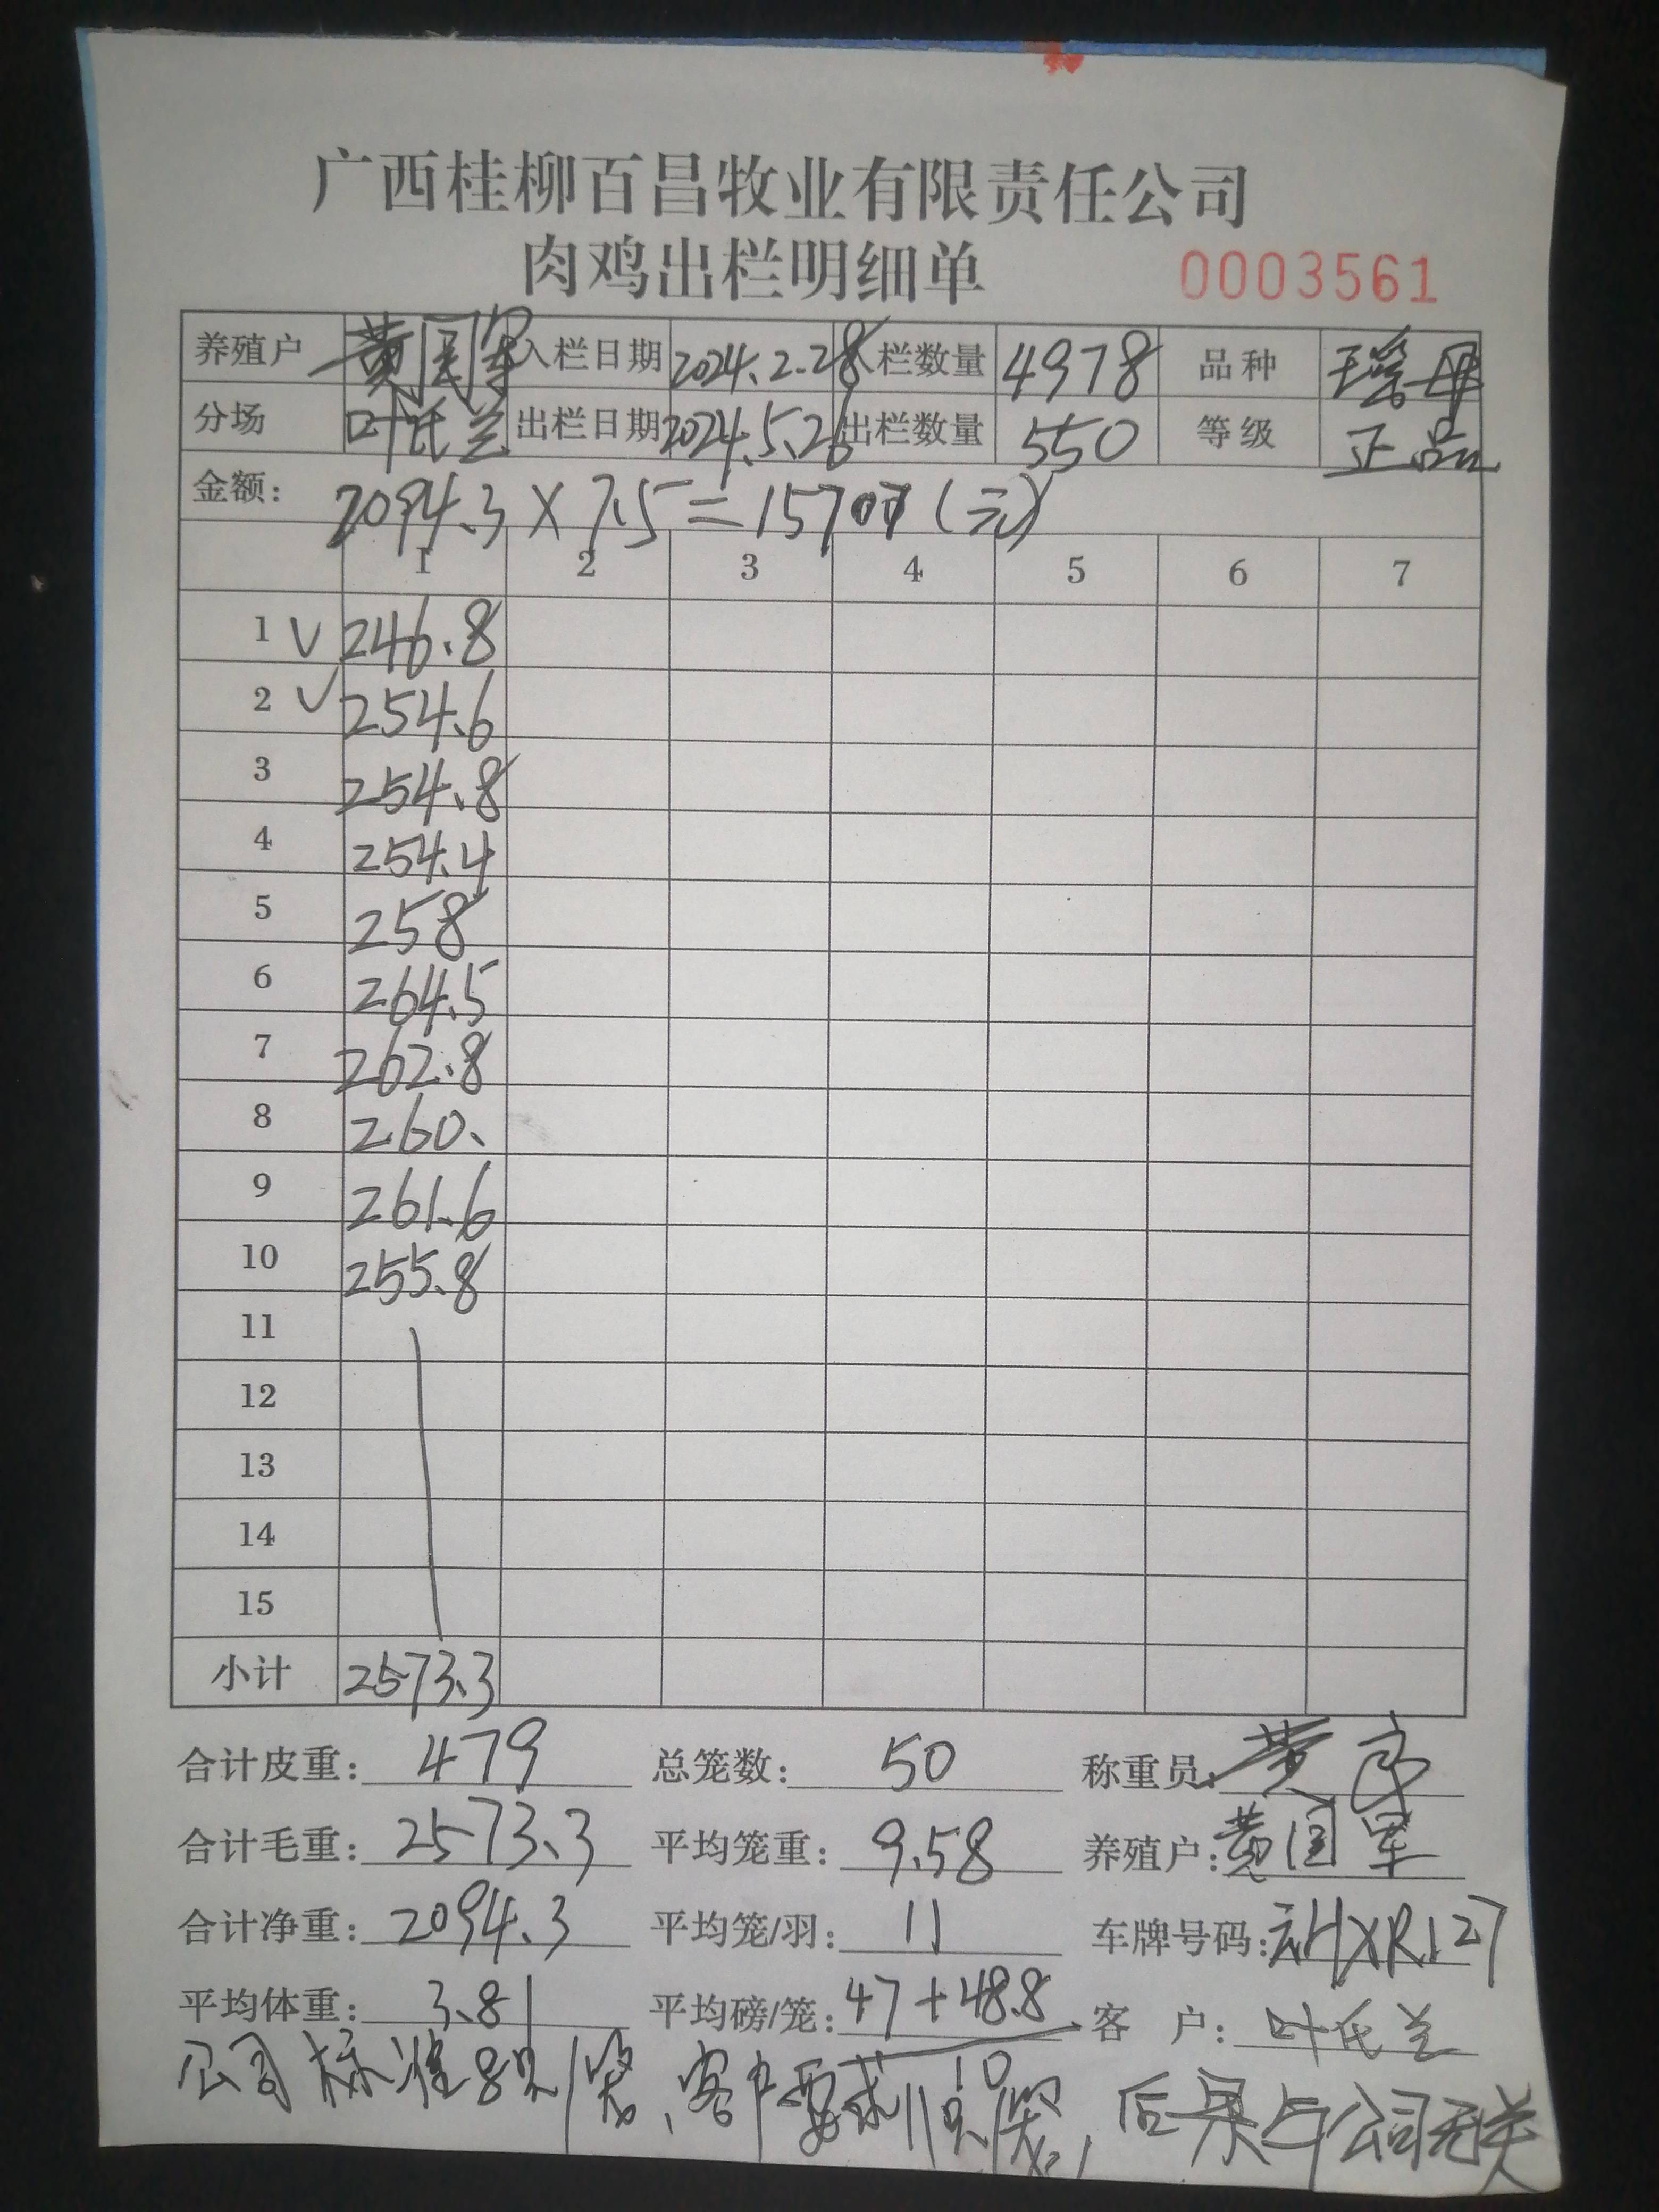 广西桂柳百昌牧业有限责任公司
肉鸡出栏明细单 0003561
养殖户 黄国军 入栏日期 2024.2.28 入栏数量 4978 品种 瑶母
分场 叶氏兰 出栏日期 2024.5.26 出栏数量 550 等级 正品
金额: 2094.3×7.5=15707(元)
1 2 3 4 5 6 7
1 √ 246.8
2 √ 254.6
3 254.8
4 254.4
5 258
6 264.5
7 262.8
8 260.
9 261.6
10 255.8
11
12
13
14
15
小计 2573.3
合计皮重: 479 总笼数: 50 称重员: 黄
合计毛重: 2573.3 平均笼重: 9.58 养殖户: 黄国军
合计净重: 2094.3 平均笼/羽: 11 车牌号码: 云HXR127
平均体重: 3.81 平均磅/笼: 47+48.8 客户: 叶氏兰
10
公司标准8只/笼,客户要求11只/笼,后果与公司无关